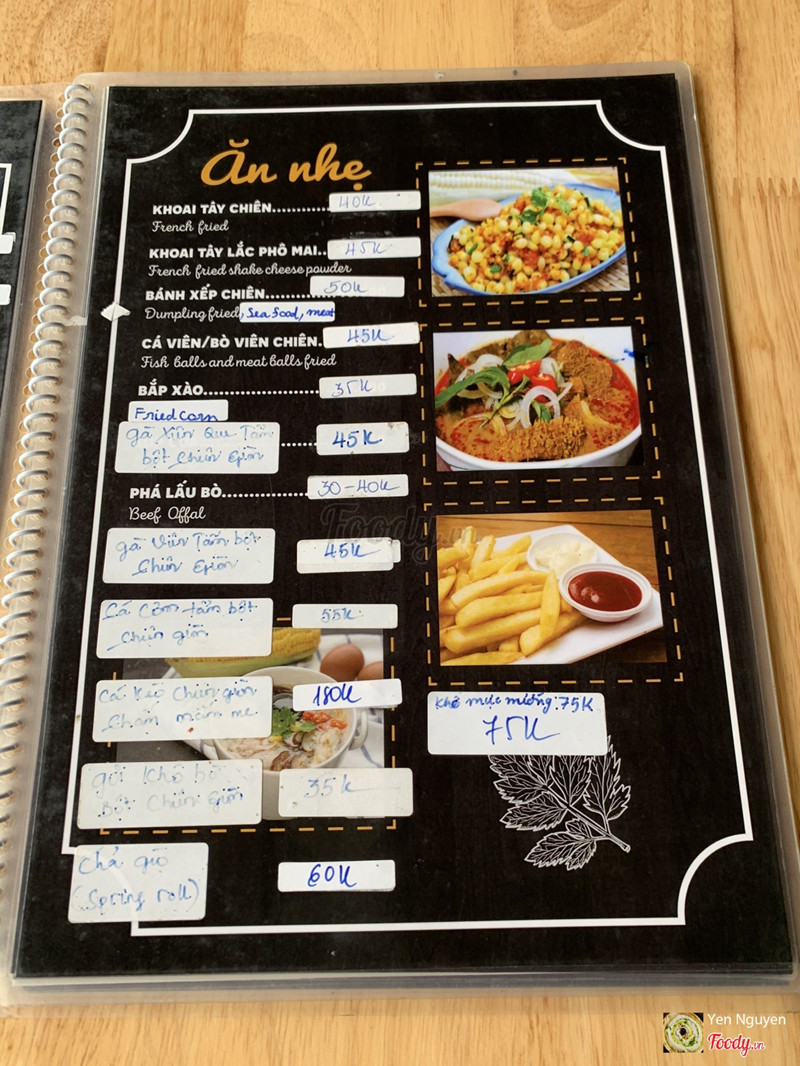 Ăn nhẹ
KHOAI TÂY CHIÊN............ 40K
French fried
KHOAI TÂY LẮC PHÔ MAI.. 45K
French fried shake cheese powder
BÁNH XẾP CHIÊN............ 50K
Dumpling fried, Sea food, meat
CÁ VIÊN/BÒ VIÊN CHIÊN. 45K
Fish balls and meat balls fried
BẮP XÀO............ 35K
Fried corn
gà Xiên Que Tẩm ...... 45K
bột Chiên giòn
PHÁ LẤU BÒ............ 30-40K
Beef Offal
gà Viên Tẩm bột 45K
Chiên giòn
Cá Cơm tẩm bột 55K
Chiên giòn
Cá Kèo Chiên giòn 180K
Chấm mắm me
35K
bột Chiên giòn
Chả giò 60K
(Spring roll)
Khô mực nướng: 75K
75K
Foody.vn
Yen Nguyen
Foody.vn